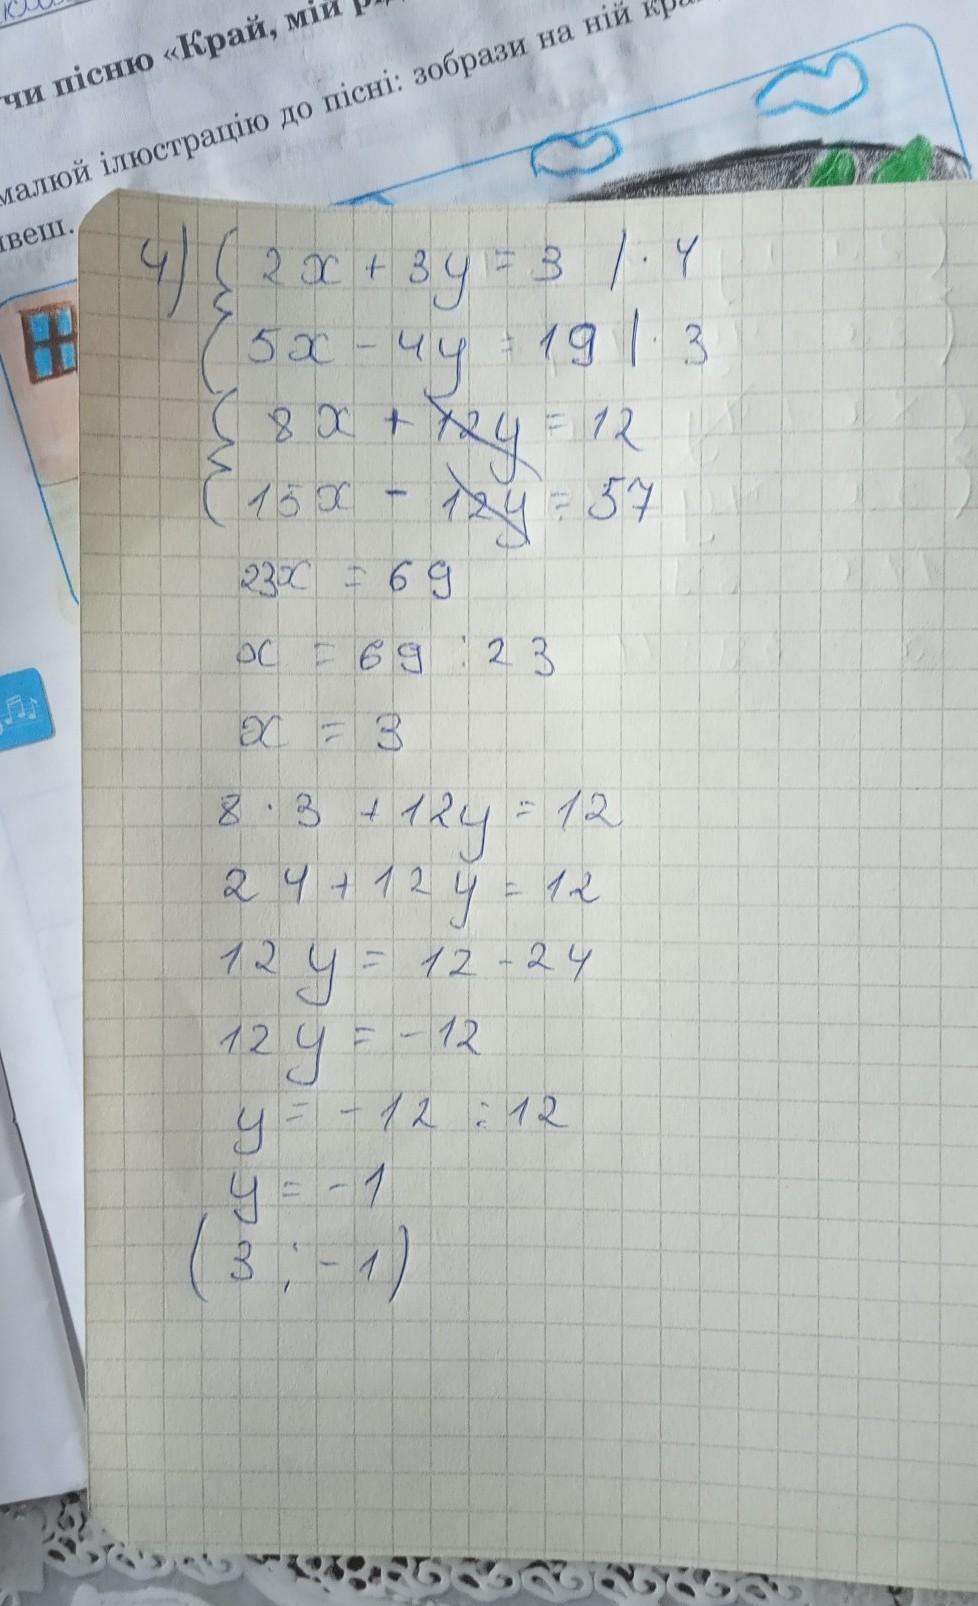 чи пісню «Край, мій
малюй ілюстрацію до пісні: зобрази на ній
4) { 2x + 3y = 3 | · 4
5x - 4y = 19 | · 3
{ 8x + 12y = 12
15x - 12y = 57
23x = 69
x = 69 : 23
x = 3
8 · 3 + 12y = 12
24 + 12y = 12
12y = 12 - 24
12y = -12
y = -12 : 12
y = -1
(3 ; -1)